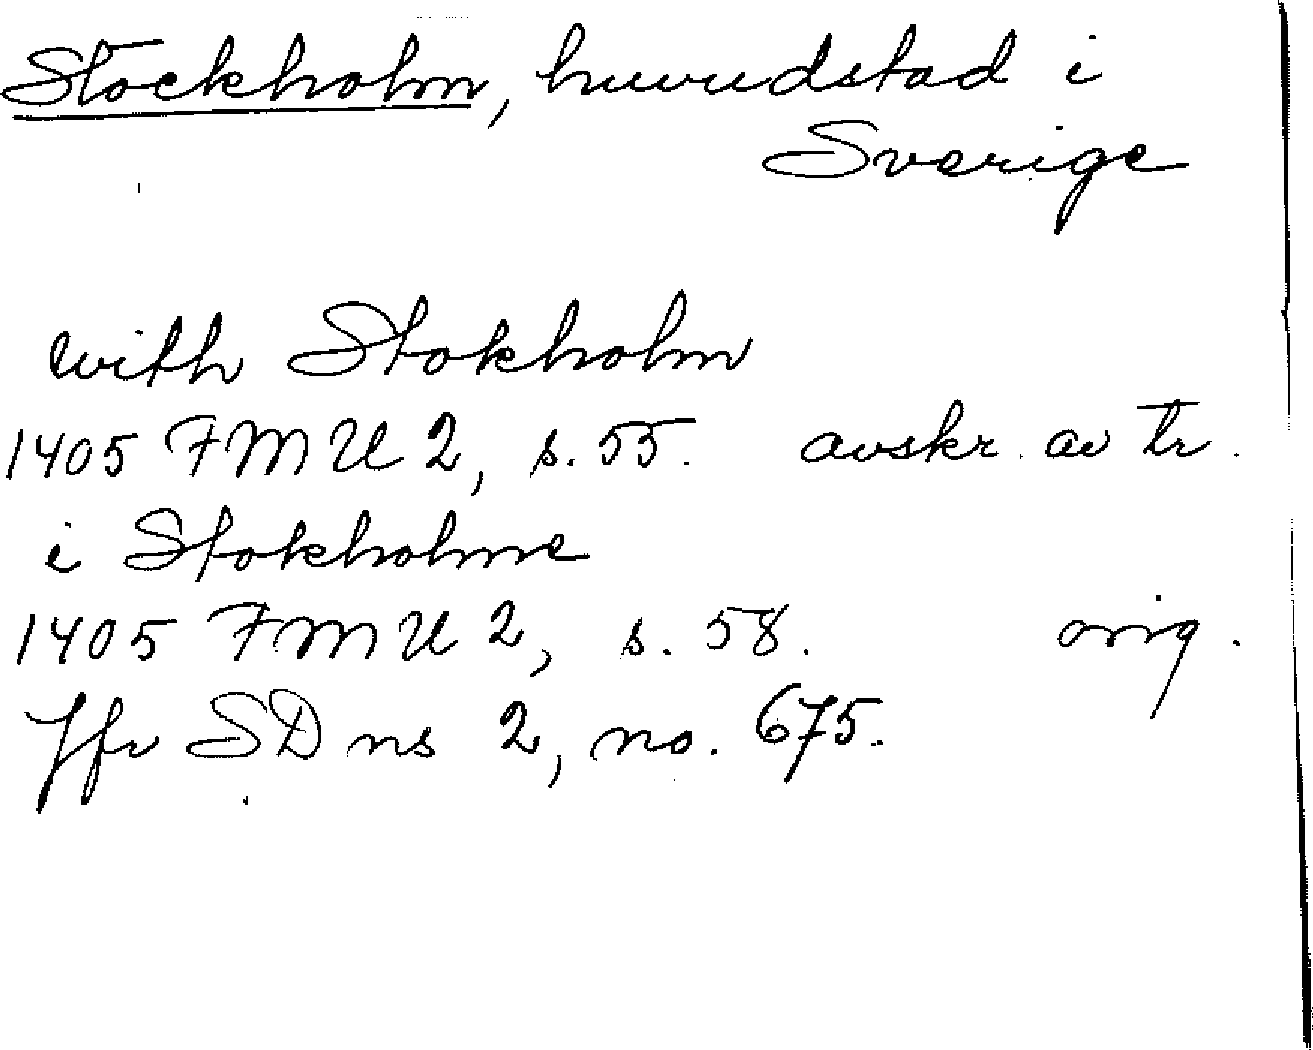 Stockholm, huvudstad i
Sverige
with Stokholm
1405 FMU 2, s. 55. avskr. av tr.
i Stokholme
1405 FMU 2, s. 58. orig.
Jfr SD ns 2, no. 675.